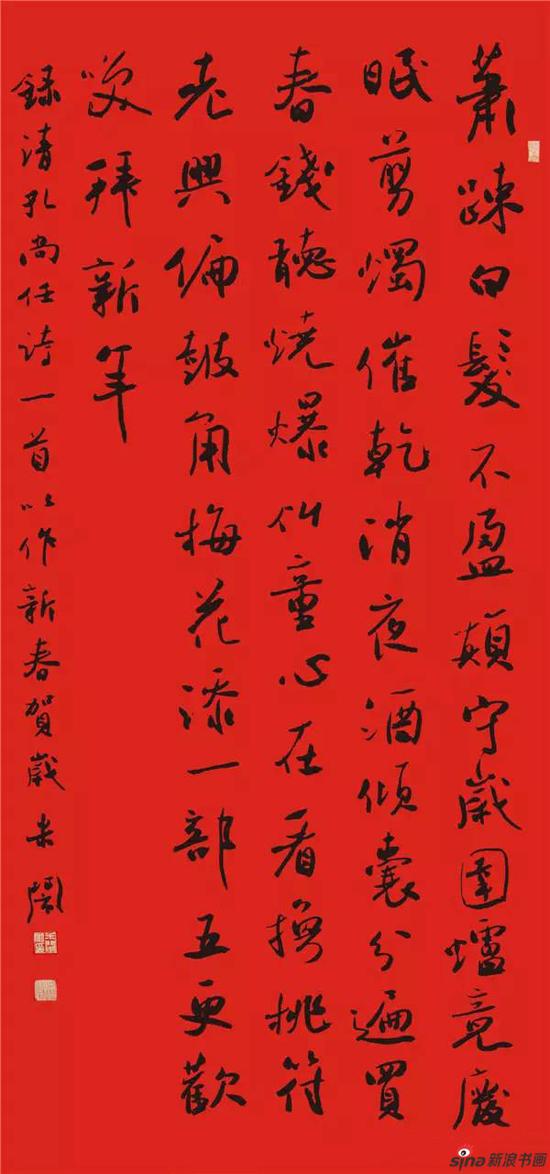 蕭疎白髮不盈顛守歲圍爐竟廢
眠剪燭催乾消夜酒傾囊分遍買
春錢聽燒爆竹童心在看換桃符
老興偏鼓角梅花添一部五更歡
笑拜新年
錄清孔尚任詩一首以作新春賀歲朱
sina新浪书画